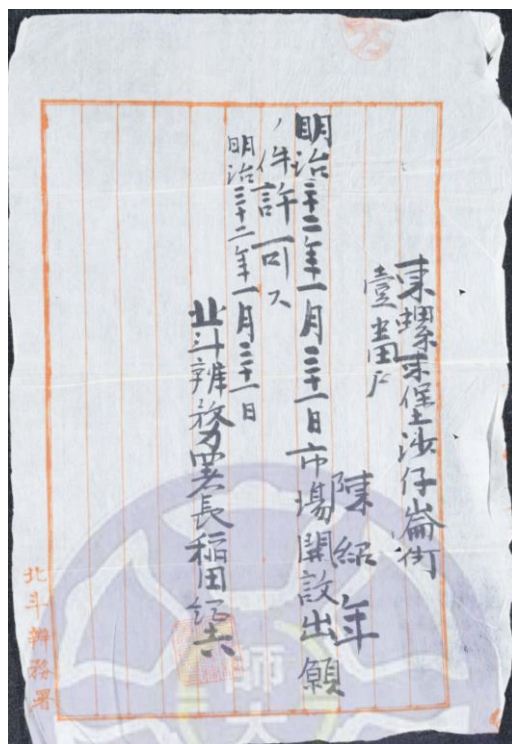 東螺東保土沙仔崙街
壹番戶
陳紹年
明治三十二年一月三十一日市場開設出願
ノ件許可ス
明治三十二年一月三十一日
北斗辨務署長稻田
北斗辨務署
師大